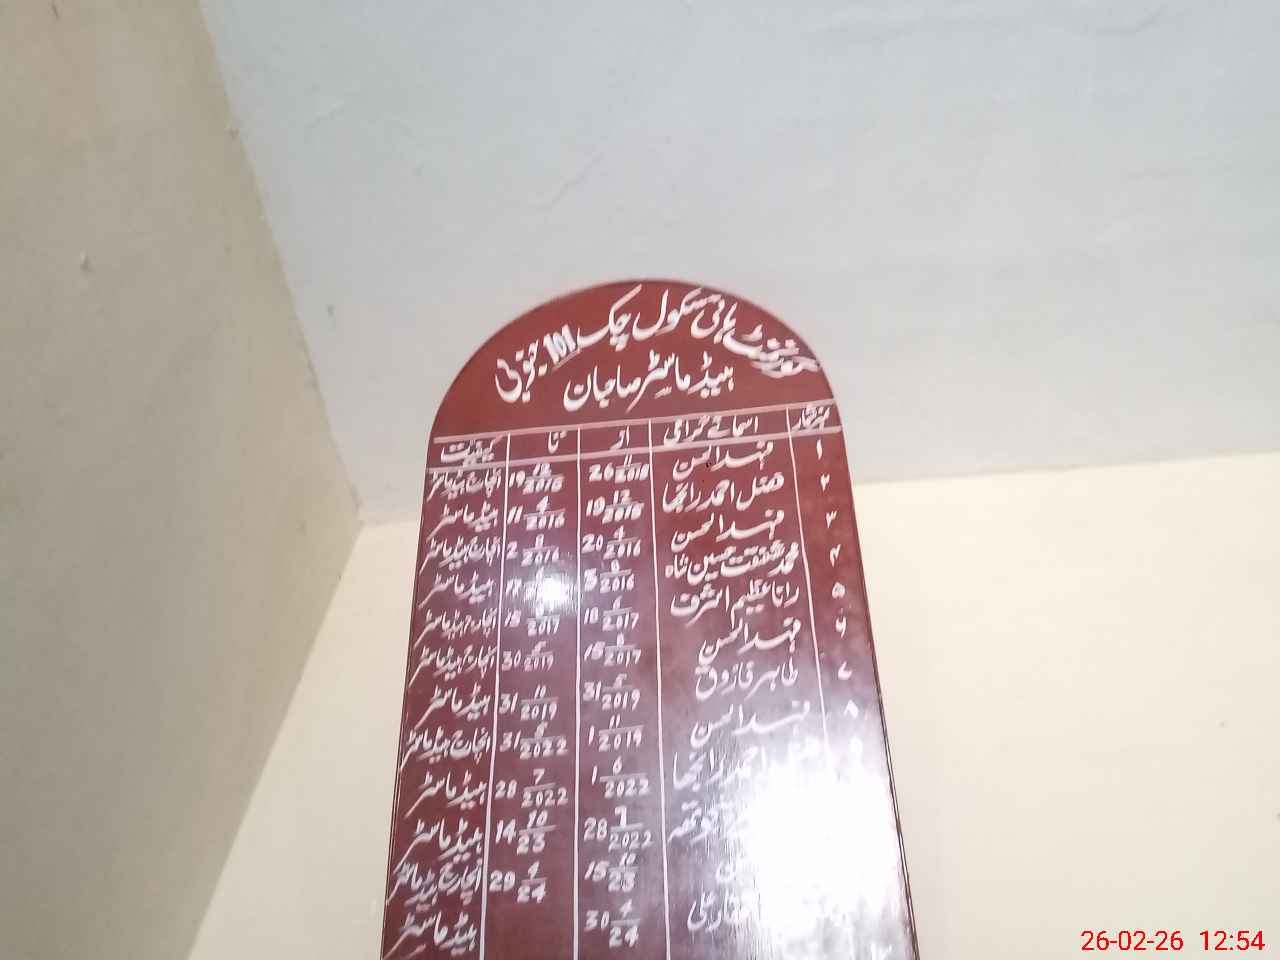 گورنمنٹ ہائی سکول چک 101 جنوبی
ہیڈ ماسٹر صاحبان
نمبر شمار اسمائے گرامی از تا کیفیت
۱ فہد الحسن 26 11/2015 19 12/2015 انچارج ہیڈ ماسٹر
۲ فضل احمد رانجھا 19 12/2015 11 4/2016 ہیڈ ماسٹر
۳ فہد الحسن 20 4/2016 2 8/2016 انچارج ہیڈ ماسٹر
۴ محمد شفقت حسین شاہ 8/2016 ہیڈ ماسٹر
۵ رانا عظیم اشرف 18 6/2017 15 /2017 انچارج ہیڈ ماسٹر
۶ فہد الحسن 15 8/2017 30 5/2019 انچارج ہیڈ ماسٹر
۷ طاہر فاروق 31 5/2019 31 10/2019 ہیڈ ماسٹر
۸ فہد الحسن 1 11/2019 31 5/2022 انچارج ہیڈ ماسٹر
احمد رانجھا 1 6/2022 28 7/2022 ہیڈ ماسٹر
28 7/2022 14 10/23 ہیڈ ماسٹر
15 10/23 29 4/24 انچارج ہیڈ ماسٹر
علی 30 4/24 ہیڈ ماسٹر
26-02-26 12:54